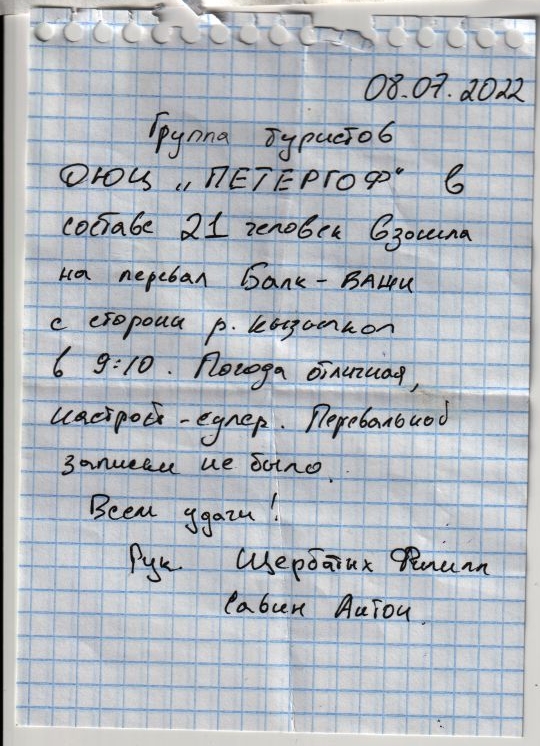 08.07.2022
Группа туристов
ДЮЦ „ПЕТЕРГОФ“ в
составе 21 человек взошла
на перевал Балк-Баши
с стороны р. Кызылкол
в 9:10. Погода отличная,
настрой-супер. Перевальной
записки не было.
Всем удачи!
Рук. Щербатых Филипп
Савин Антон.